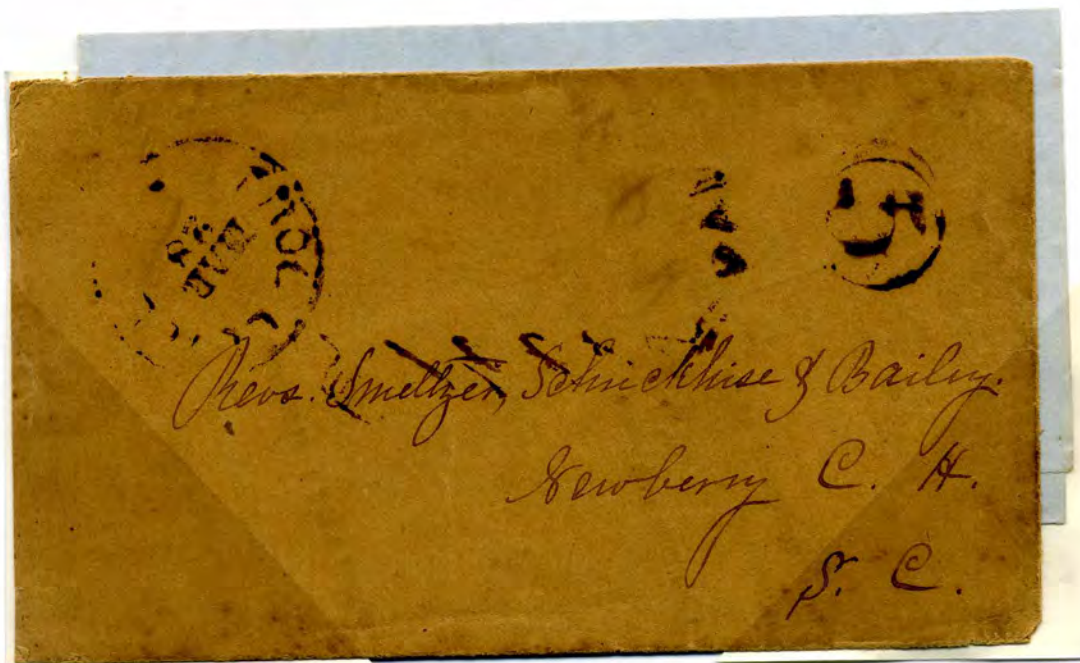 Revs. Smeltzer, Schrickhise & Bailey.
Newberry C. H.
S. C.